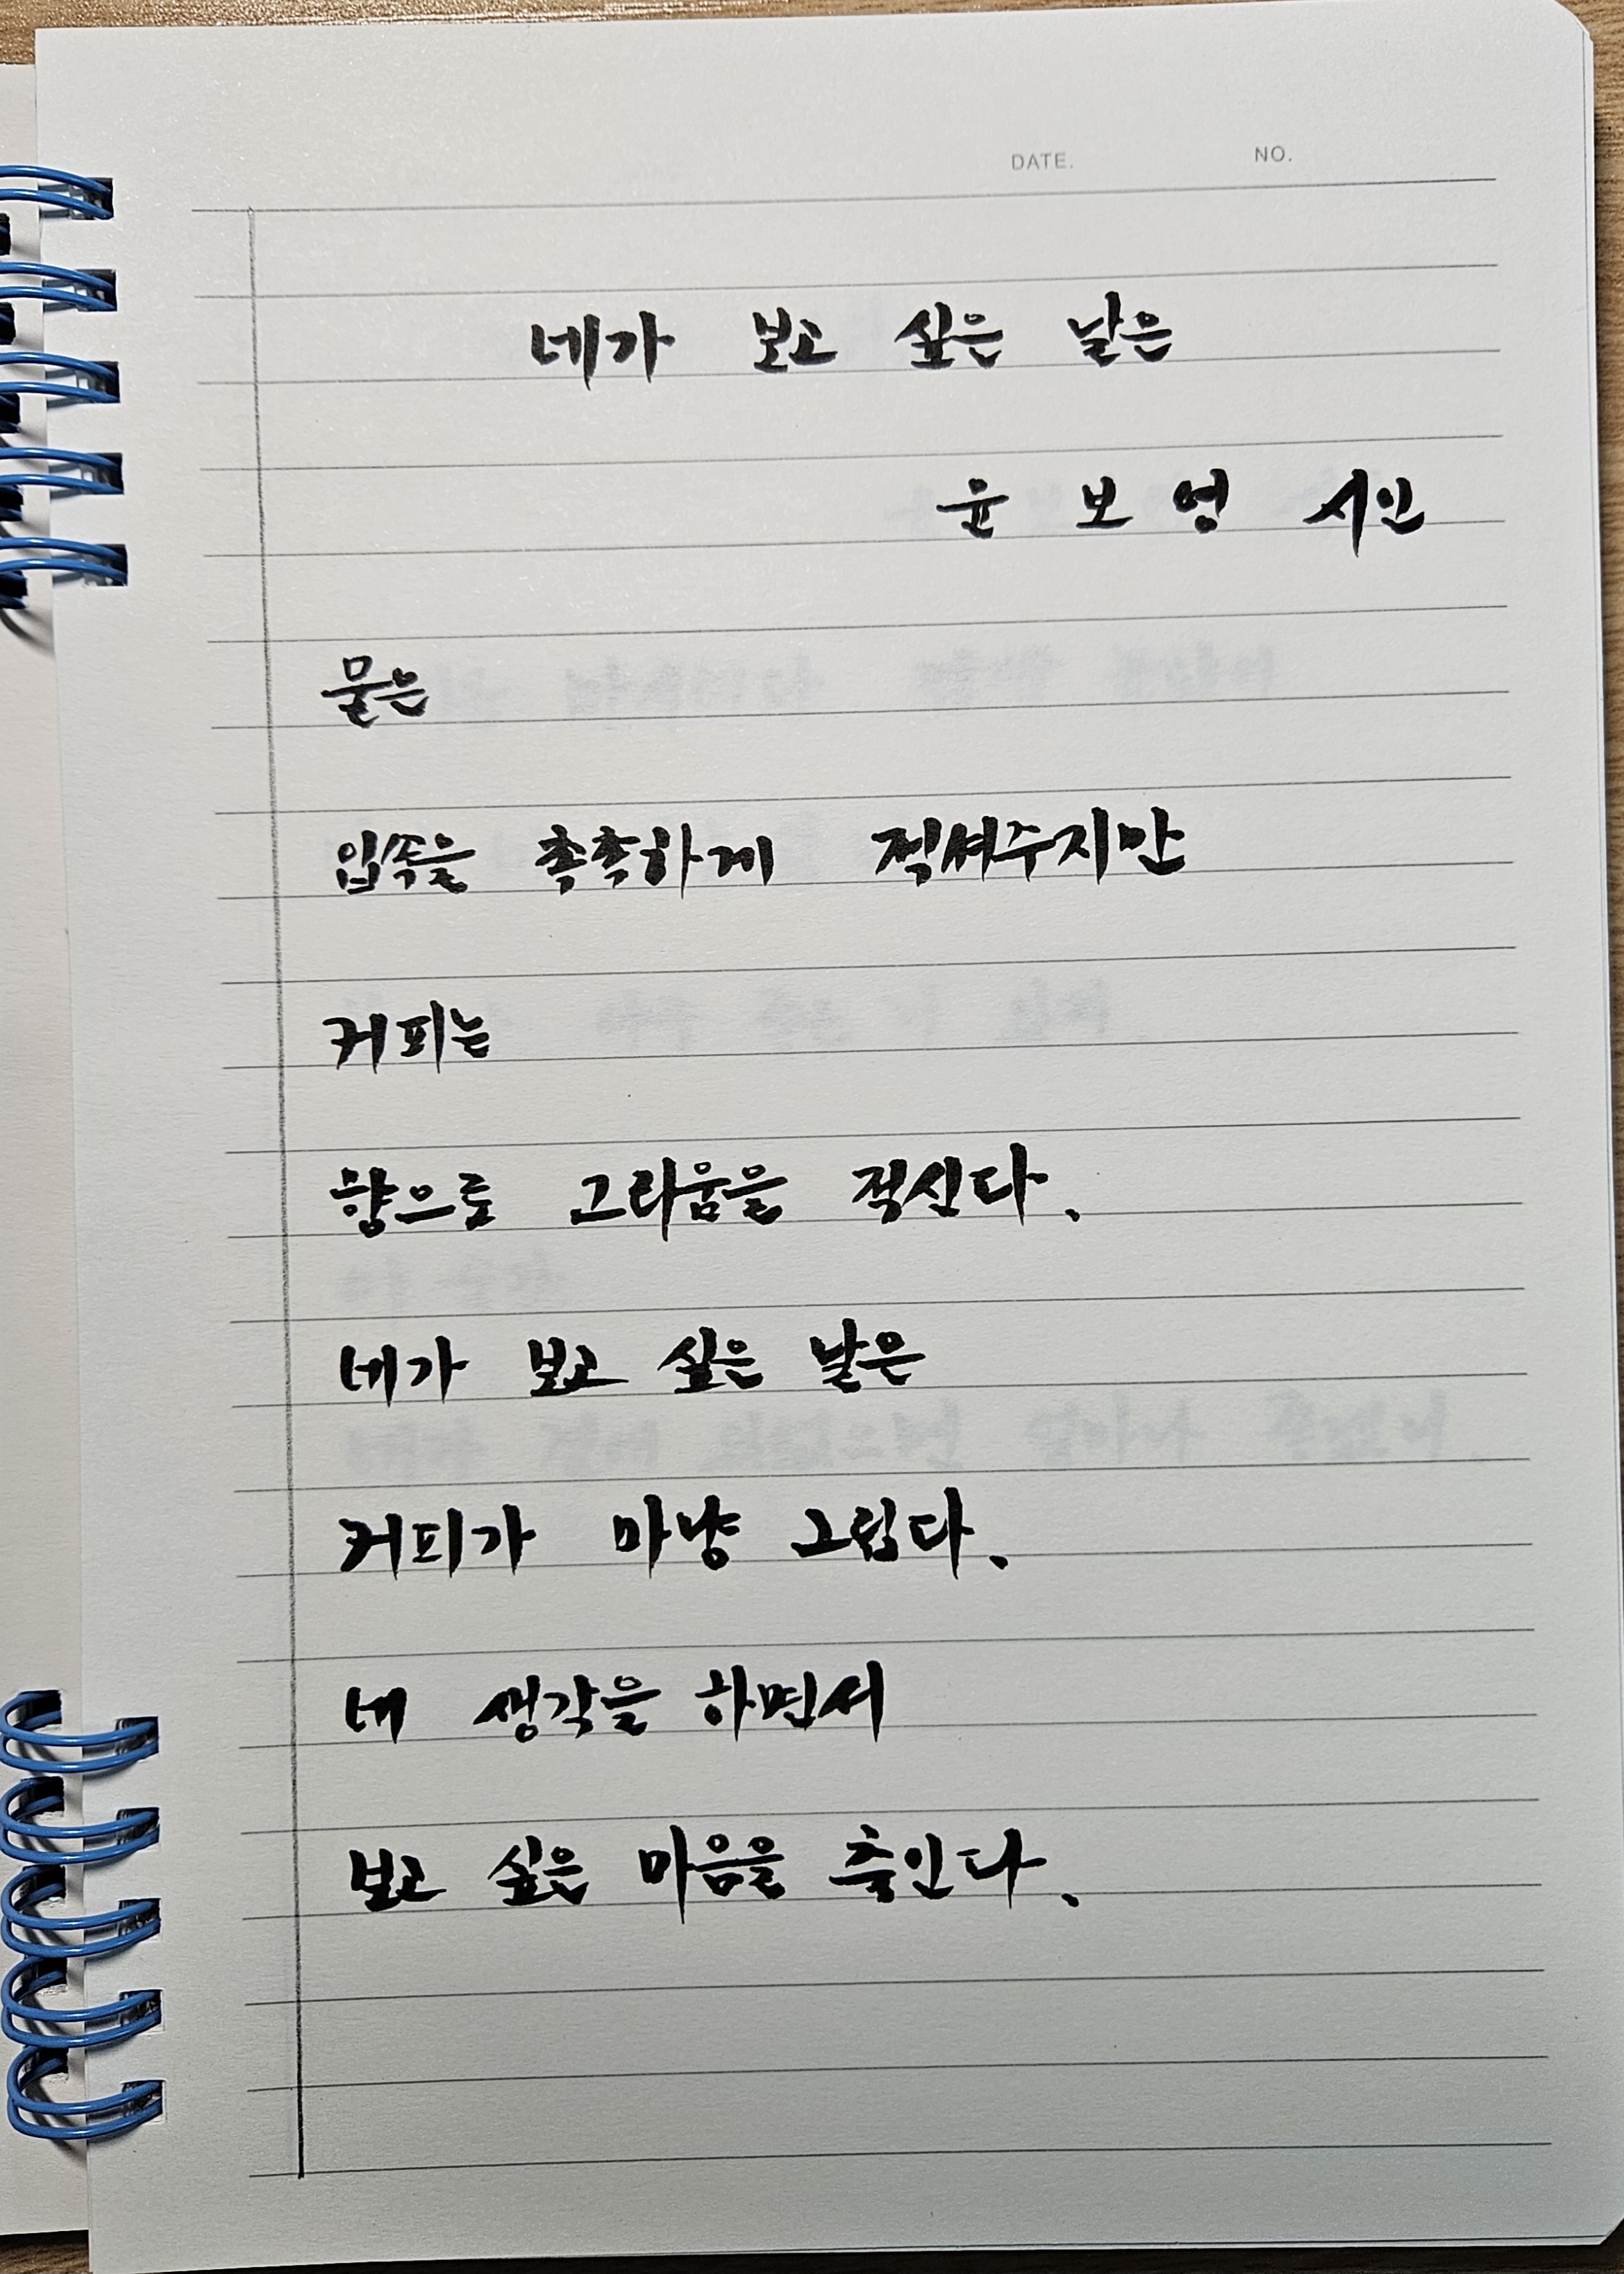 DATE. NO.
네가 보고 싶은 날은
윤 보 영 시인
물은
입속을 촉촉하게 적셔주지만
커피는
향으로 그리움을 적신다.
네가 보고 싶은 날은
커피가 마냥 그립다.
네 생각을 하면서
보고 싶은 마음을 줄인다.